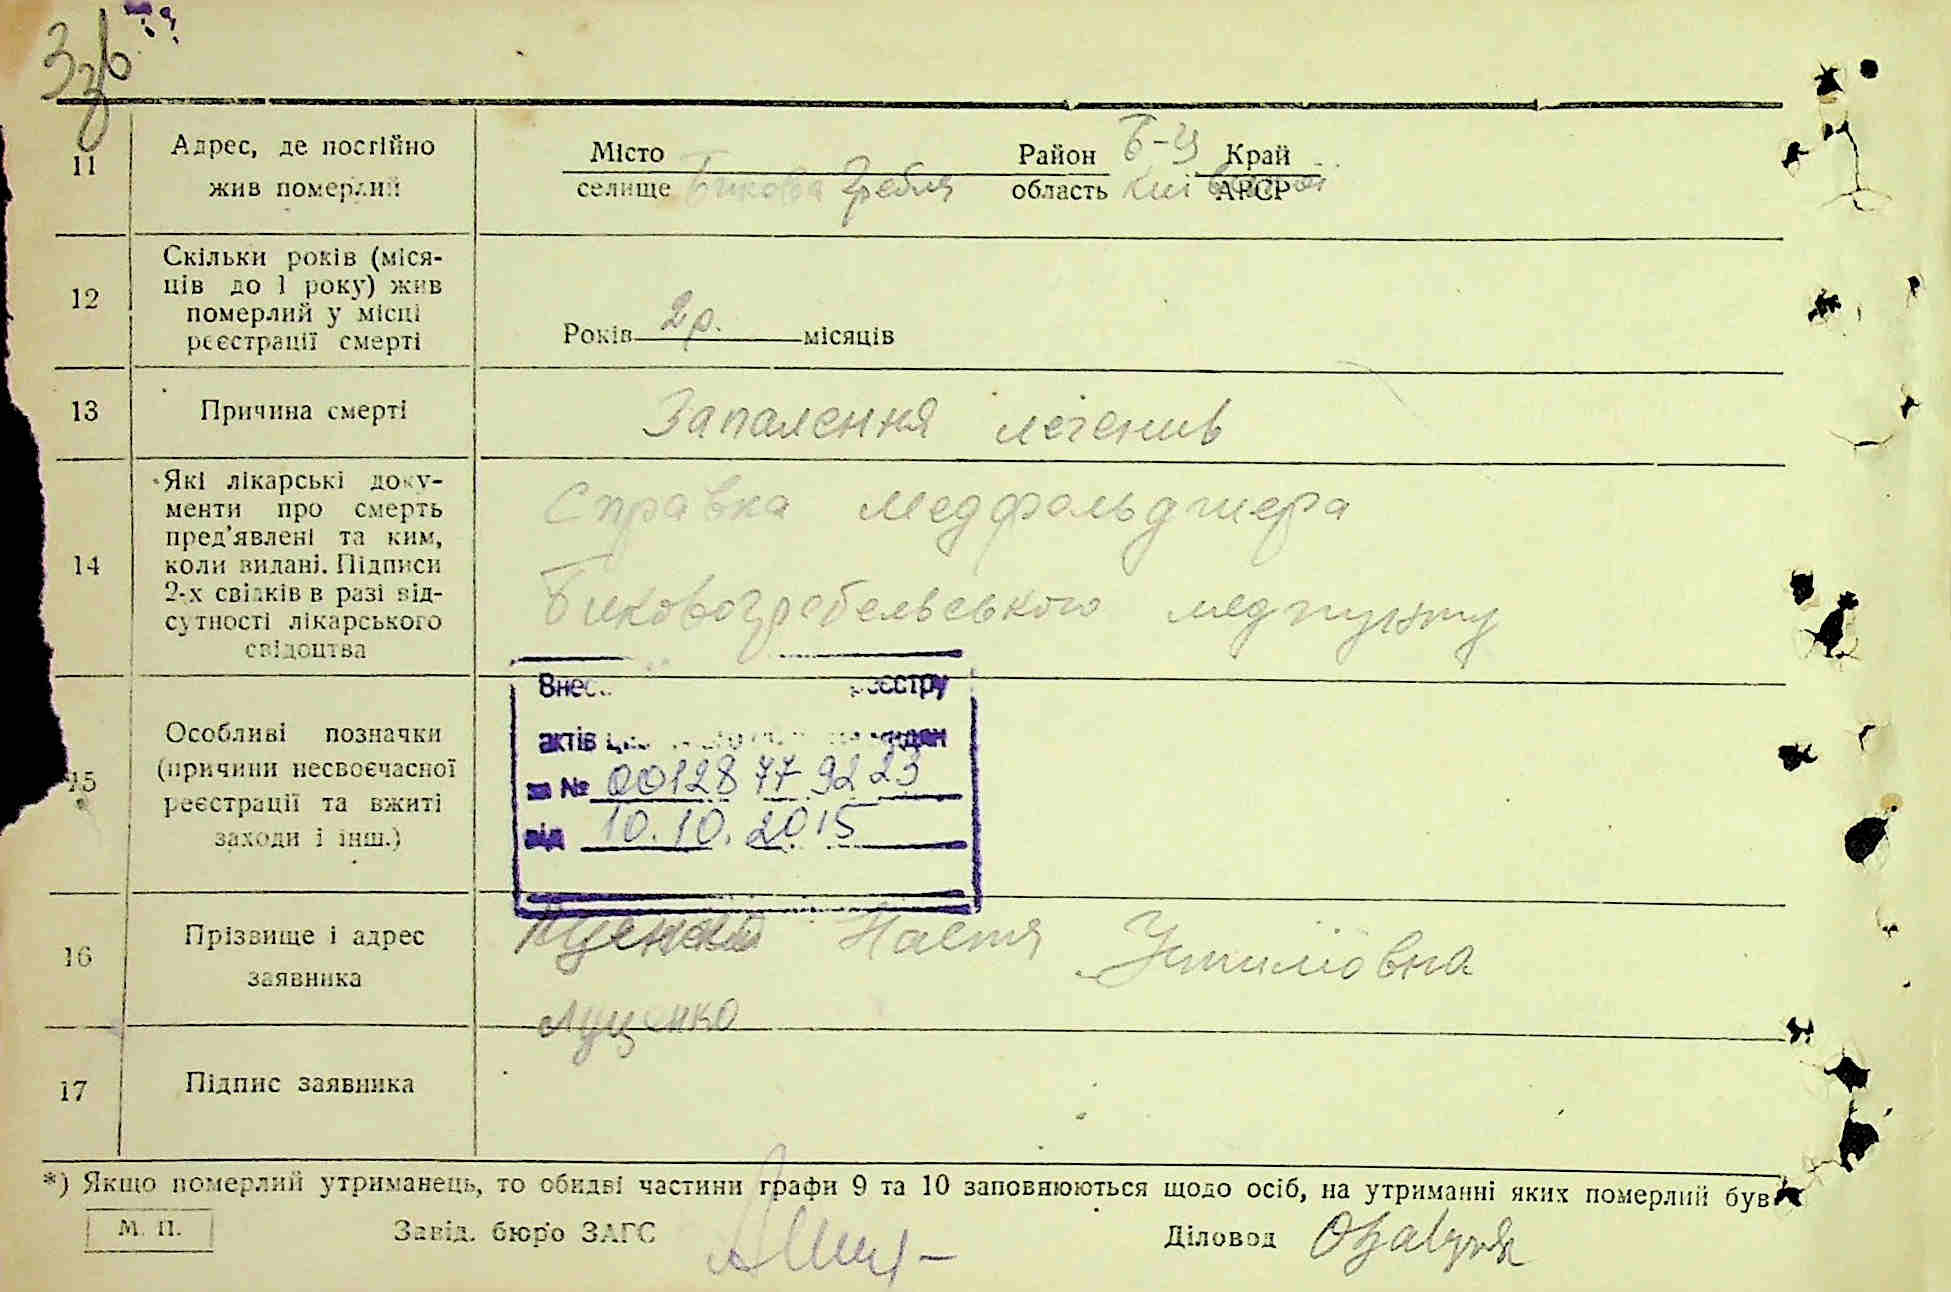 3зв
11
Адрес, де постійно
жив померлий
Місто
селище Бикова Гребля
Район Б-Ц Край
область Київської АРСР
12
Скільки років (міся-
ців до 1 року) жив
померлий у місці
реєстрації смерті
Років 2 р. місяців
13
Причина смерті
Запалення легенив
14
Які лікарські доку-
менти про смерть
пред'явлені та ким,
коли видані. Підписи
2-х свідків в разі від-
сутності лікарського
свідоцтва
Справка медфельдшера
Биковогребельського медпункту
15
Особливі позначки
(причини несвоєчасної
реєстрації та вжиті
заходи і інш.)
реєстру
актів
за № 00128779223
від 10.10.2015
16
Прізвище і адрес
заявника
Настя Устимовна
Луценко
17
Підпис заявника
*) Якщо померлий утриманець, то обидві частини графи 9 та 10 заповнюються щодо осіб, на утриманні яких померлий був
М. П.
Завід. бюро ЗАГС
Діловод